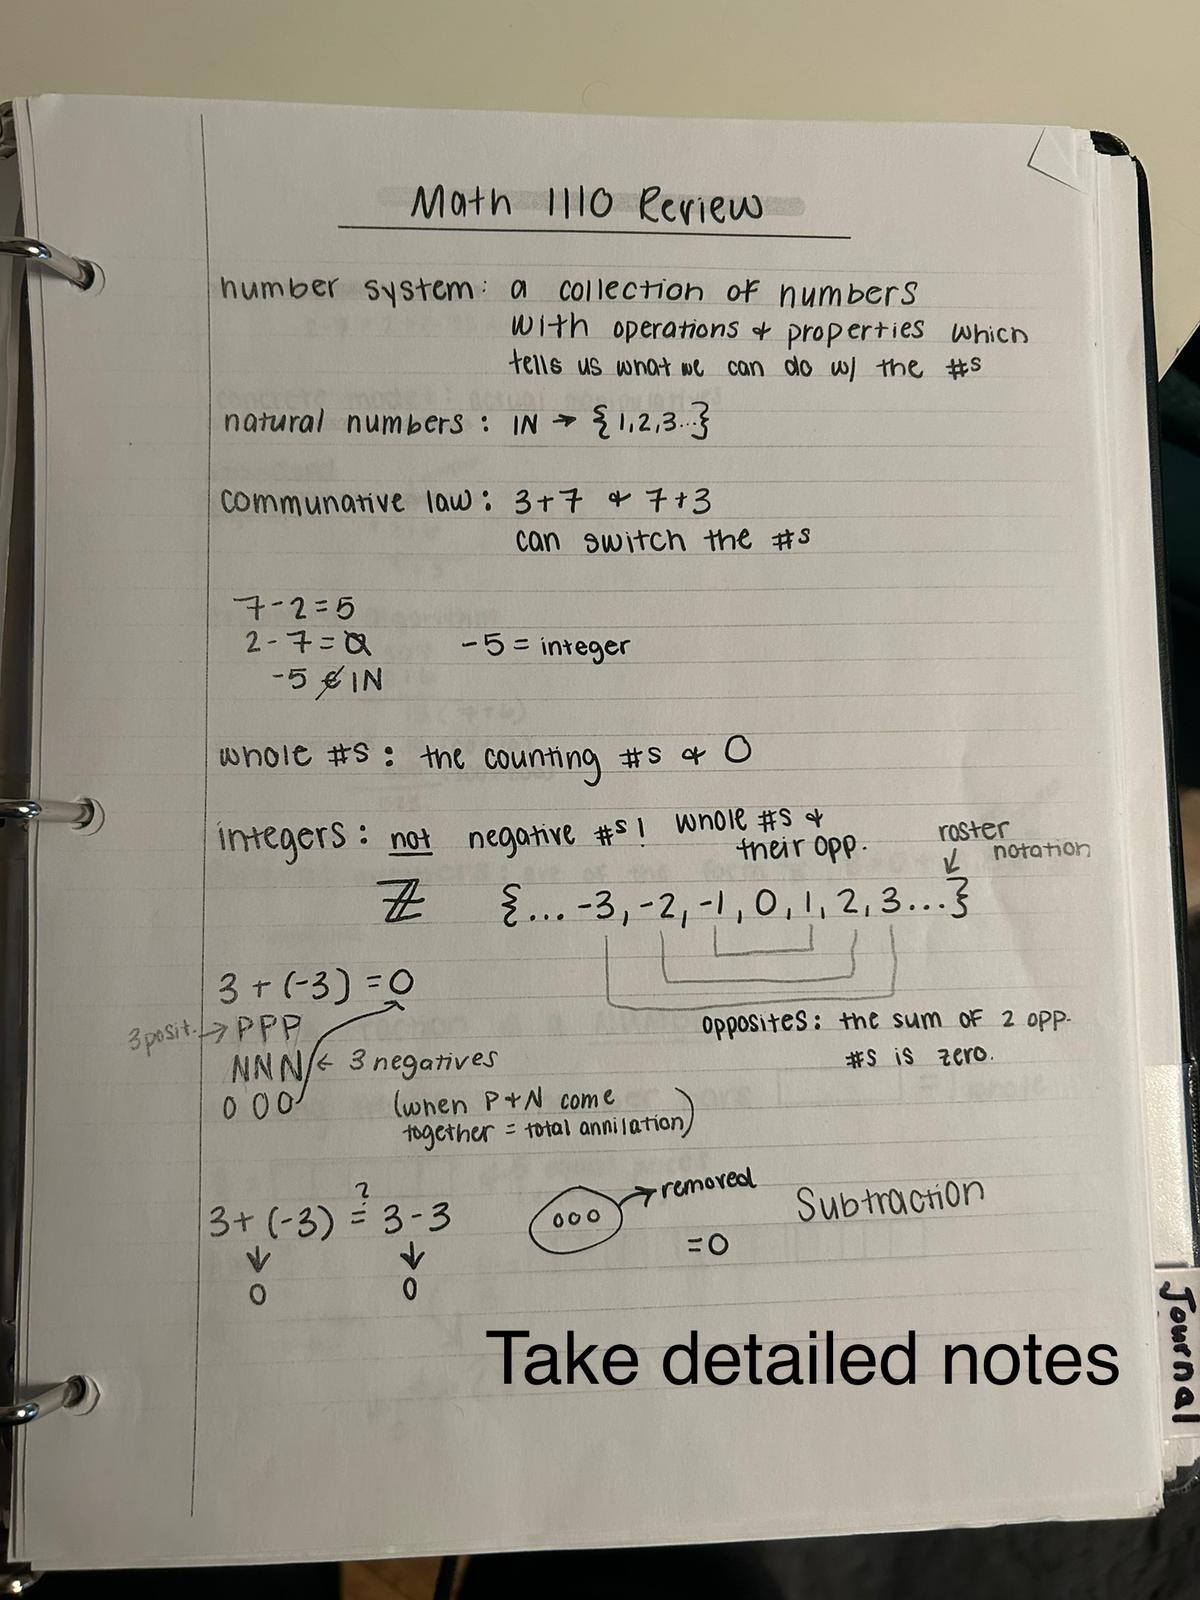 Math 1110 Review
number system: a collection of numbers
with operations & properties which
tells us what we can do w/ the #s
natural numbers: ℕ → {1,2,3...}
communative law: 3+7 & 7+3
can switch the #s
7-2=5
2-7=
-5 = integer
-5 ∉ ℕ
whole #s: the counting #s & 0
integers: not negative #s! whole #s &
their opp.
roster
notation
ℤ {... -3, -2, -1, 0, 1, 2, 3...}
3 + (-3) = 0
3 posit. → PPP
NNN ← 3 negatives
000
(when P+N come
together = total annilation)
opposites: the sum of 2 opp.
#s is zero.
3+ (-3) ≟ 3-3
↓ ↓
0 0
000 → removed
=0
Subtraction
Take detailed notes
Journal